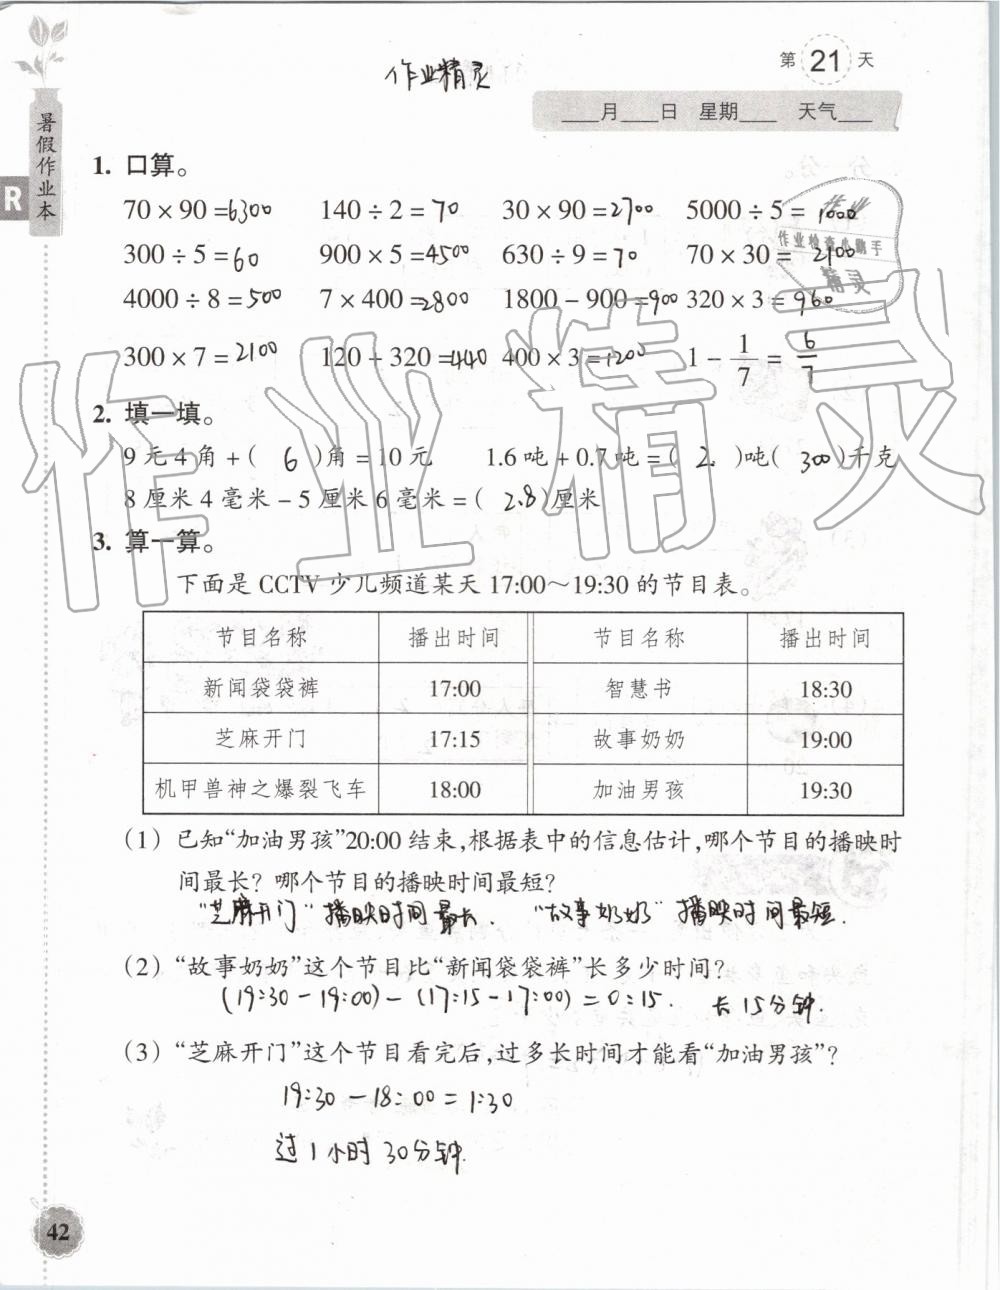 第 21 天
作业精灵
___月___日 星期___ 天气___
暑假作业本
R
1. 口算。
70 × 90 =6300 140 ÷ 2 = 70 30 × 90 =2700 5000 ÷ 5 = 1000
300 ÷ 5 =60 900 × 5 =4500 630 ÷ 9 =70 70 × 30 = 2100
4000 ÷ 8 =500 7 × 400 =2800 1800 − 900 =900 320 × 3 = 960
300 × 7 = 2100 120 + 320 =440 400 × 3 =1200 1 − 1/7 = 6/7
作业
作业检查小助手
精灵
作业精灵
2. 填一填。
9 元 4 角 + ( 6 )角 = 10 元 1.6 吨 + 0.7 吨 = ( 2. )吨( 300 )千克
8 厘米 4 毫米 − 5 厘米 6 毫米 = ( 2.8 )厘米
3. 算一算。
下面是 CCTV 少儿频道某天 17:00～19:30 的节目表。
节目名称 播出时间 节目名称 播出时间
新闻袋袋裤 17:00 智慧书 18:30
芝麻开门 17:15 故事奶奶 19:00
机甲兽神之爆裂飞车 18:00 加油男孩 19:30
(1) 已知“加油男孩”20:00 结束,根据表中的信息估计,哪个节目的播映时
间最长? 哪个节目的播映时间最短?
“芝麻开门”播映时间最长. “故事奶奶”播映时间最短.
(2) “故事奶奶”这个节目比“新闻袋袋裤”长多少时间?
(19:30 − 19:00) − (17:15 − 17:00) = 0:15. 长 15分钟.
(3) “芝麻开门”这个节目看完后,过多长时间才能看“加油男孩”?
19:30 − 18:00 = 1:30
过 1 小时 30分钟.
42